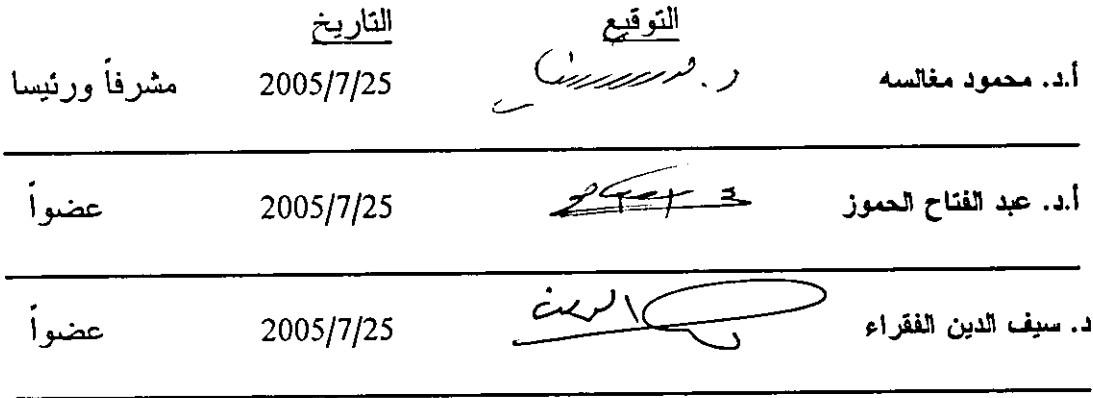 التوقيع التاريخ
أ.د. محمود مغالسه 2005/7/25 مشرفاً ورئيسا
أ.د. عبد الفتاح الحموز 2005/7/25 عضواً
د. سيف الدين الفقراء 2005/7/25 عضواً